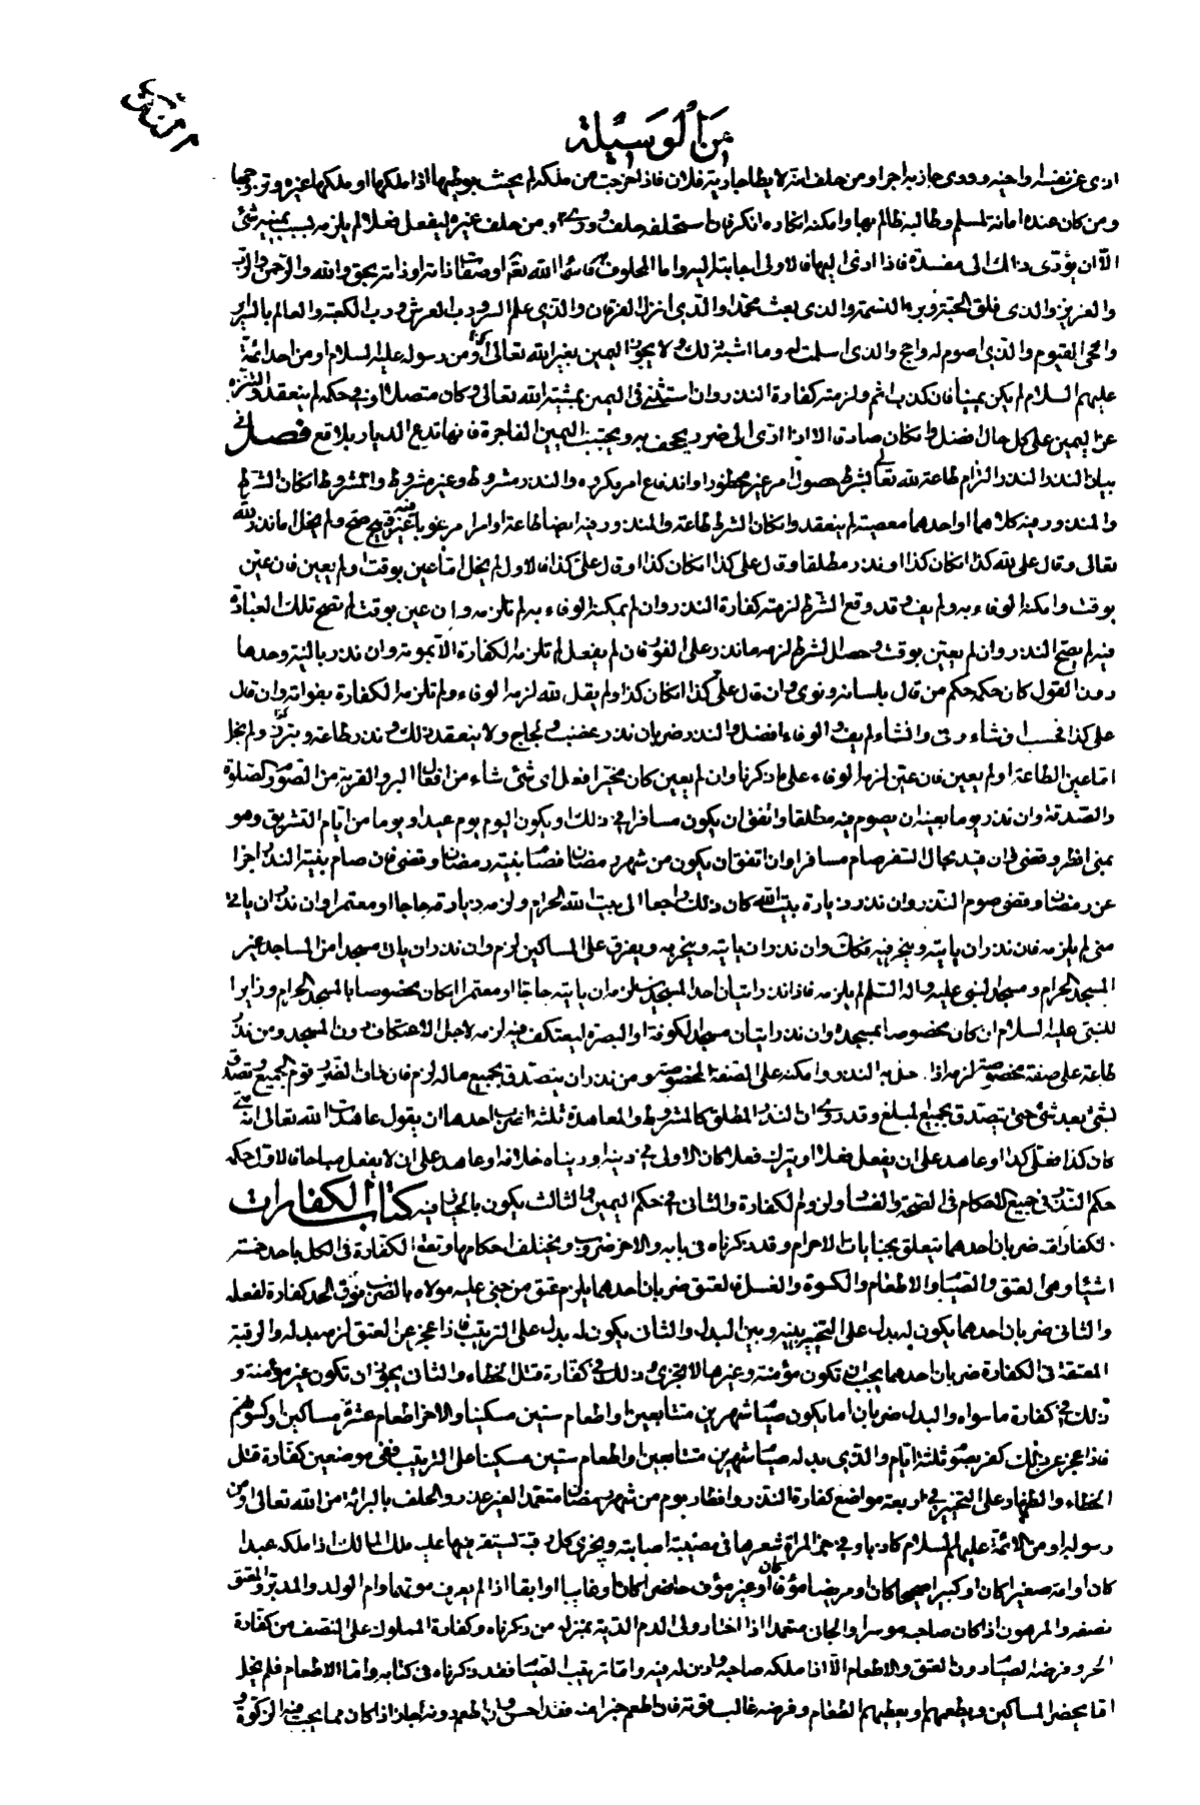 النذر
من الوسيلة
اذى عن نفسه او اخيه وورى جاز به اجرا ومن حلف انه لا يطأ جارية فلان فاذا خرجت من ملكه لم يحنث بوطيها اذا ملكها او ملكها غيره وتزوجها
ومن كان عنده امانة لمسلم وطالبه ظالم بها وامكنه انكاره انكر فان استحلفه حلف وورى ومن حلف غيره ليفعل فعلا لم يلزمه بسبب يمينه شئ
الا ان يؤدى ذلك الى مفسدة فاذا ادى اليها فالاولى اجابته اليه واما المحلوف به فاسماء الله تعالى او صفات ذاته او ذاته بحق والله والرحمن والرب
والعزيز والذى فلق الحبة وبرء النسمة والذى بعث محمدا والذي انزل الفرقان والذي علم السر ورب العرش ورب الكعبة والعالم بالسر
والحي القيوم والذي اصوم له واحج والذى اسلمت له وما اشبه ذلك ولا يجوز اليمين بغير الله تعالى او من رسوله عليه السلام او من احد ائمة
عليهم السلام لم يكن يمينا فان كذب اثم ولزمته كفارة النذر وان استثنى في اليمين بمشية الله تعالى وكان متصلا او في حكمه لم ينعقد والتنزه
عن اليمين على كل حال افضل وان كان صادقا الا اذا ادى الى ضرر يجحف به ويجتنب اليمين الفاجرة فانها تدع الديار بلاقع فصل في
بيان النذر النذر التزام طاعة لله تعالى بشرط حصول امر غير محظور او اندفاع امر مكروه والنذر مشروط وغير مشروط والمشروط ان كان الشرط
والمنذور فيه كلاهما او احدهما معصية لم ينعقد وان كان الشرط طاعة والمنذور فيه ايضا طاعة او امرا مرغوبا فيه غير قبيح صح ولم يخل اما نذر لله
تعالى وقال على لله كذا ان كان كذا او نذر مطلقا وقال على كذا ان كان كذا او قال على كذا فالاول لم يخل اما عين بوقت او لم يعين فان عين
بوقت وامكنه الوفاء به ولم يف وقد وقع الشرط لزمته كفارة النذر وان لم يمكنه الوفاء به لم تلزمه وان عين بوقت لم تصح تلك العبادة
فيه لم يصح النذر وان لم يعين بوقت وحصل الشرط لزمه ما نذر على الفور فان لم يفعل لم تلزمه الكفارة الا بموته وان نذر بالنية وحدها
دون القول كان حكمه حكم من قال بلسانه ونوى وان قال على كذا ان كان كذا ولم يقل لله لزمه الوفاء ولم تلزمه الكفارة بفواته وان قال
على كذا فحسب ان شاء وفى وان شاء لم يف والوفاء افضل والنذر ضربان نذر غضب ولجاج ولا ينعقد ذلك ونذر طاعة وتبرر ولم يخل
اما عين الطاعة او لم يعين فان عين لزمه الوفاء على ما ذكرنا وان لم يعين كان مخيرا فعل اى شئ شاء من افعال البر والقربة من الصوم والصلوة
والصدقة وان نذر يوما بعينه ان يصوم فيه مطلقا واتفق ان يكون مسافرا في ذلك او يكون اليوم يوم عيد او يوما من ايام التشريق وهو
بمنى افطر وقضى فان قيد بحال السفر صام مسافرا وان اتفق ان يكون من شهر رمضان فصام بنية رمضان وقضى فان صام بنية النذر اجزا
عن رمضان وقضى صوم النذر وان نذر زيارة بيت الله كان ذلك راجعا الى بيت الله الحرام ولزمه زيارته حاجا او معتمرا وان نذر ان ياتى
منى لم يلزمه فان نذر ان ياتيه وينحر فيه فكذلك وان نذر ان ياتيه وينحر به ويفرق على المساكين لزم وان نذر ان يات مسجدا من المساجد غير
المسجد الحرام ومسجد النبى عليه واله السلم لم يلزمه فاذا نذر اتيان احد المسجدين يلزمه ان ياتيه حاجا او معتمرا ان كان مخصوصا بالمسجد الحرام وزايرا
للنبى عليه السلام ان كان مخصوصا بمسجده وان نذر اتيان مسجد الكوفة او البصرة ليعتكف فيه لزمه لاجل الاعتكاف دون المسجد ومن نذر
طاعة على صفة مخصوصة لزمه اذا حل به النذر وامكنه على الصفة المخصوصة ومن نذر ان يتصدق بجميع ماله لزم فان خاف الضرر قوم الجميع وتصدق
بشئ بعد شئ حتى يتصدق بجميع المبلغ وقد روى ان النذر المطلق كالمشروط والمعاهدة ثلثة اضرب احدها ان يقول عاهدت الله تعالى انه متى
كان كذا فعلى كذا او عاهد على ان يفعل فعلا او يترك فعلا كان الاولى في دينه او دنياه خلافه او عاهد على ان لا يفعل مباحا فالاول حكمه
حكم النذر في جميع الاحكام فى الصحة والفساد ولزوم الكفارة والثانى في حكم اليمين والثالث يكون بالخيار فيه كتاب الكفارات
الكفارات ضربان احدهما يتعلق بجنايات الاحرام وقد ذكرناه فى بابه والاخر ضروب ويختلف احكامها وتقع الكفارة فى الكل باحد خمسة
اشياء وهى العتق والصيام والاطعام والكسوة والغسل فالعتق ضربان احدهما يلزم عتق من جنى عليه مولاه بالضرب فوق الحد كفارة لفعله
والثانى ضربان احدهما يكون له بدل على التخيير بينه وبين البدل والثانى يكون له بدل على الترتيب فاذا عجز عن العتق لزمه بدله والرقبة
المعتقة فى الكفارة ضربان احدهما يجب ان تكون مؤمنة وغيرها لا تجزى وذلك في كفارة قتل الخطاء والثانى يجوز ان تكون غير مؤمنة و
ذلك في كفارة ما سواه والبدل ضربان اما يكون صيام شهرين متتابعين او اطعام ستين مسكينا والاخر اطعام عشرة مساكين او كسوتهم
فاذا عجز عن ذلك كفر بصوم ثلثة ايام والذي بدله صيام شهرين متتابعين واطعام ستين مسكينا على الترتيب ففى موضعين كفارة قتل
الخطاء والظهار وعلى التخيير في اربعة مواضع كفارة النذر وافطار يوم من شهر رمضان متعمدا لغير عذر والحلف بالبرائة من الله تعالى او من
رسوله او من الائمة عليهم السلام كاذبا وفي جز المراة شعرها فى مصيبة اصابته ويجزى كل رقبة تستقر فيها عليه ملك المالك اذا ملكه عبدا
كان او امة صغيرا كان او كبيرا صحيحا كان او مريضا مؤفا كان او غير مؤف حاضرا كان او غايبا او ابقا اذا لم يعرف موته وام الولد والمدبر والمعتق
نصفه والمرهون اذا كان صاحبه موسرا والجانى متعمدا اذا اختار ولى الدم الدية بمنزلة من ذكرناه وكفارة المملوك على النصف من كفارة
الحر وفرضه الصيام دون العتق والاطعام الا اذا ملكه صاحبه واذن له فيه واما ترتيب الصيام فقد ذكرناه فى كتابه واما الاطعام فلم يخل
اما يحضر المساكين ويطعمهم او يعطيهم الطعام وفرضه غالب قوته فان اطعم خيرا منه فقد احسن وان اطعم دونه اجاز اذا كان مما يجب فيه الزكوة و